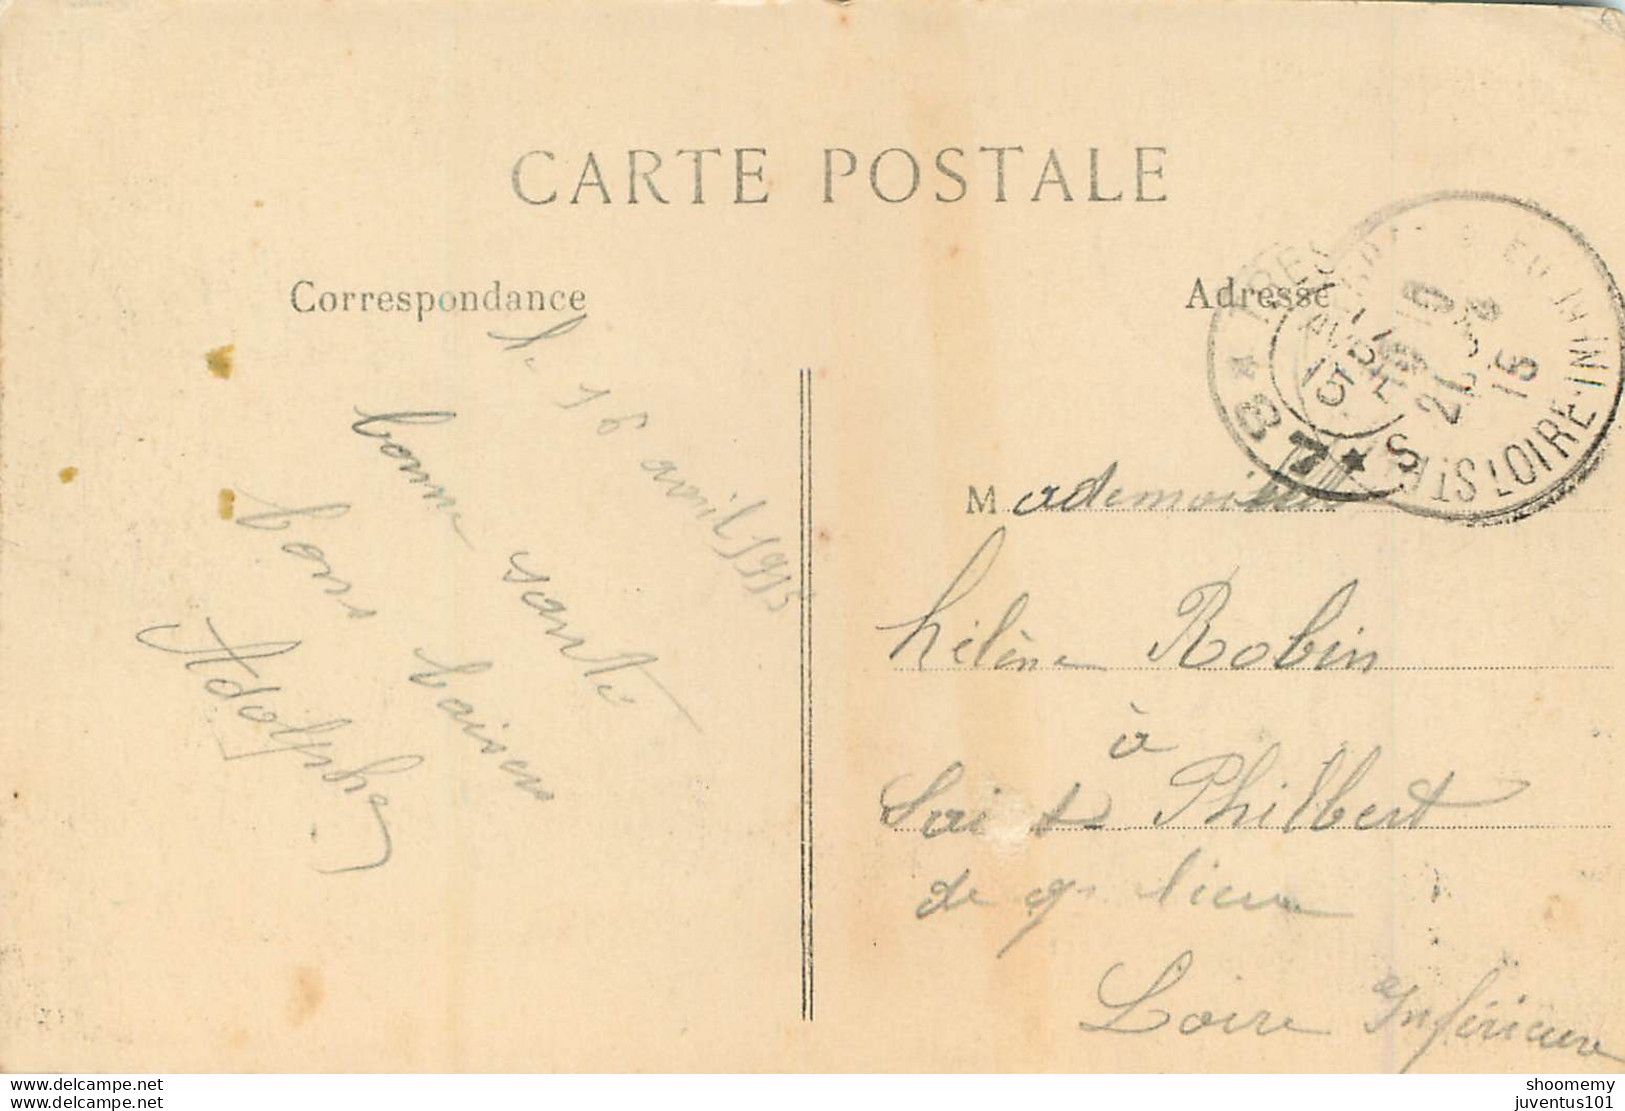 CARTE POSTALE
Correspondance
le 16 avril 1915
bonne santé
bons baisers
Adolphe
Adresse
Mademoiselle
hélène Robin
à
Saint Philbert
de gr lieu
Loire Inférieure
TRES
B7
21
15
LOIRE-IN
delcampe.net
delcampe.net
shoomemy
juventus101